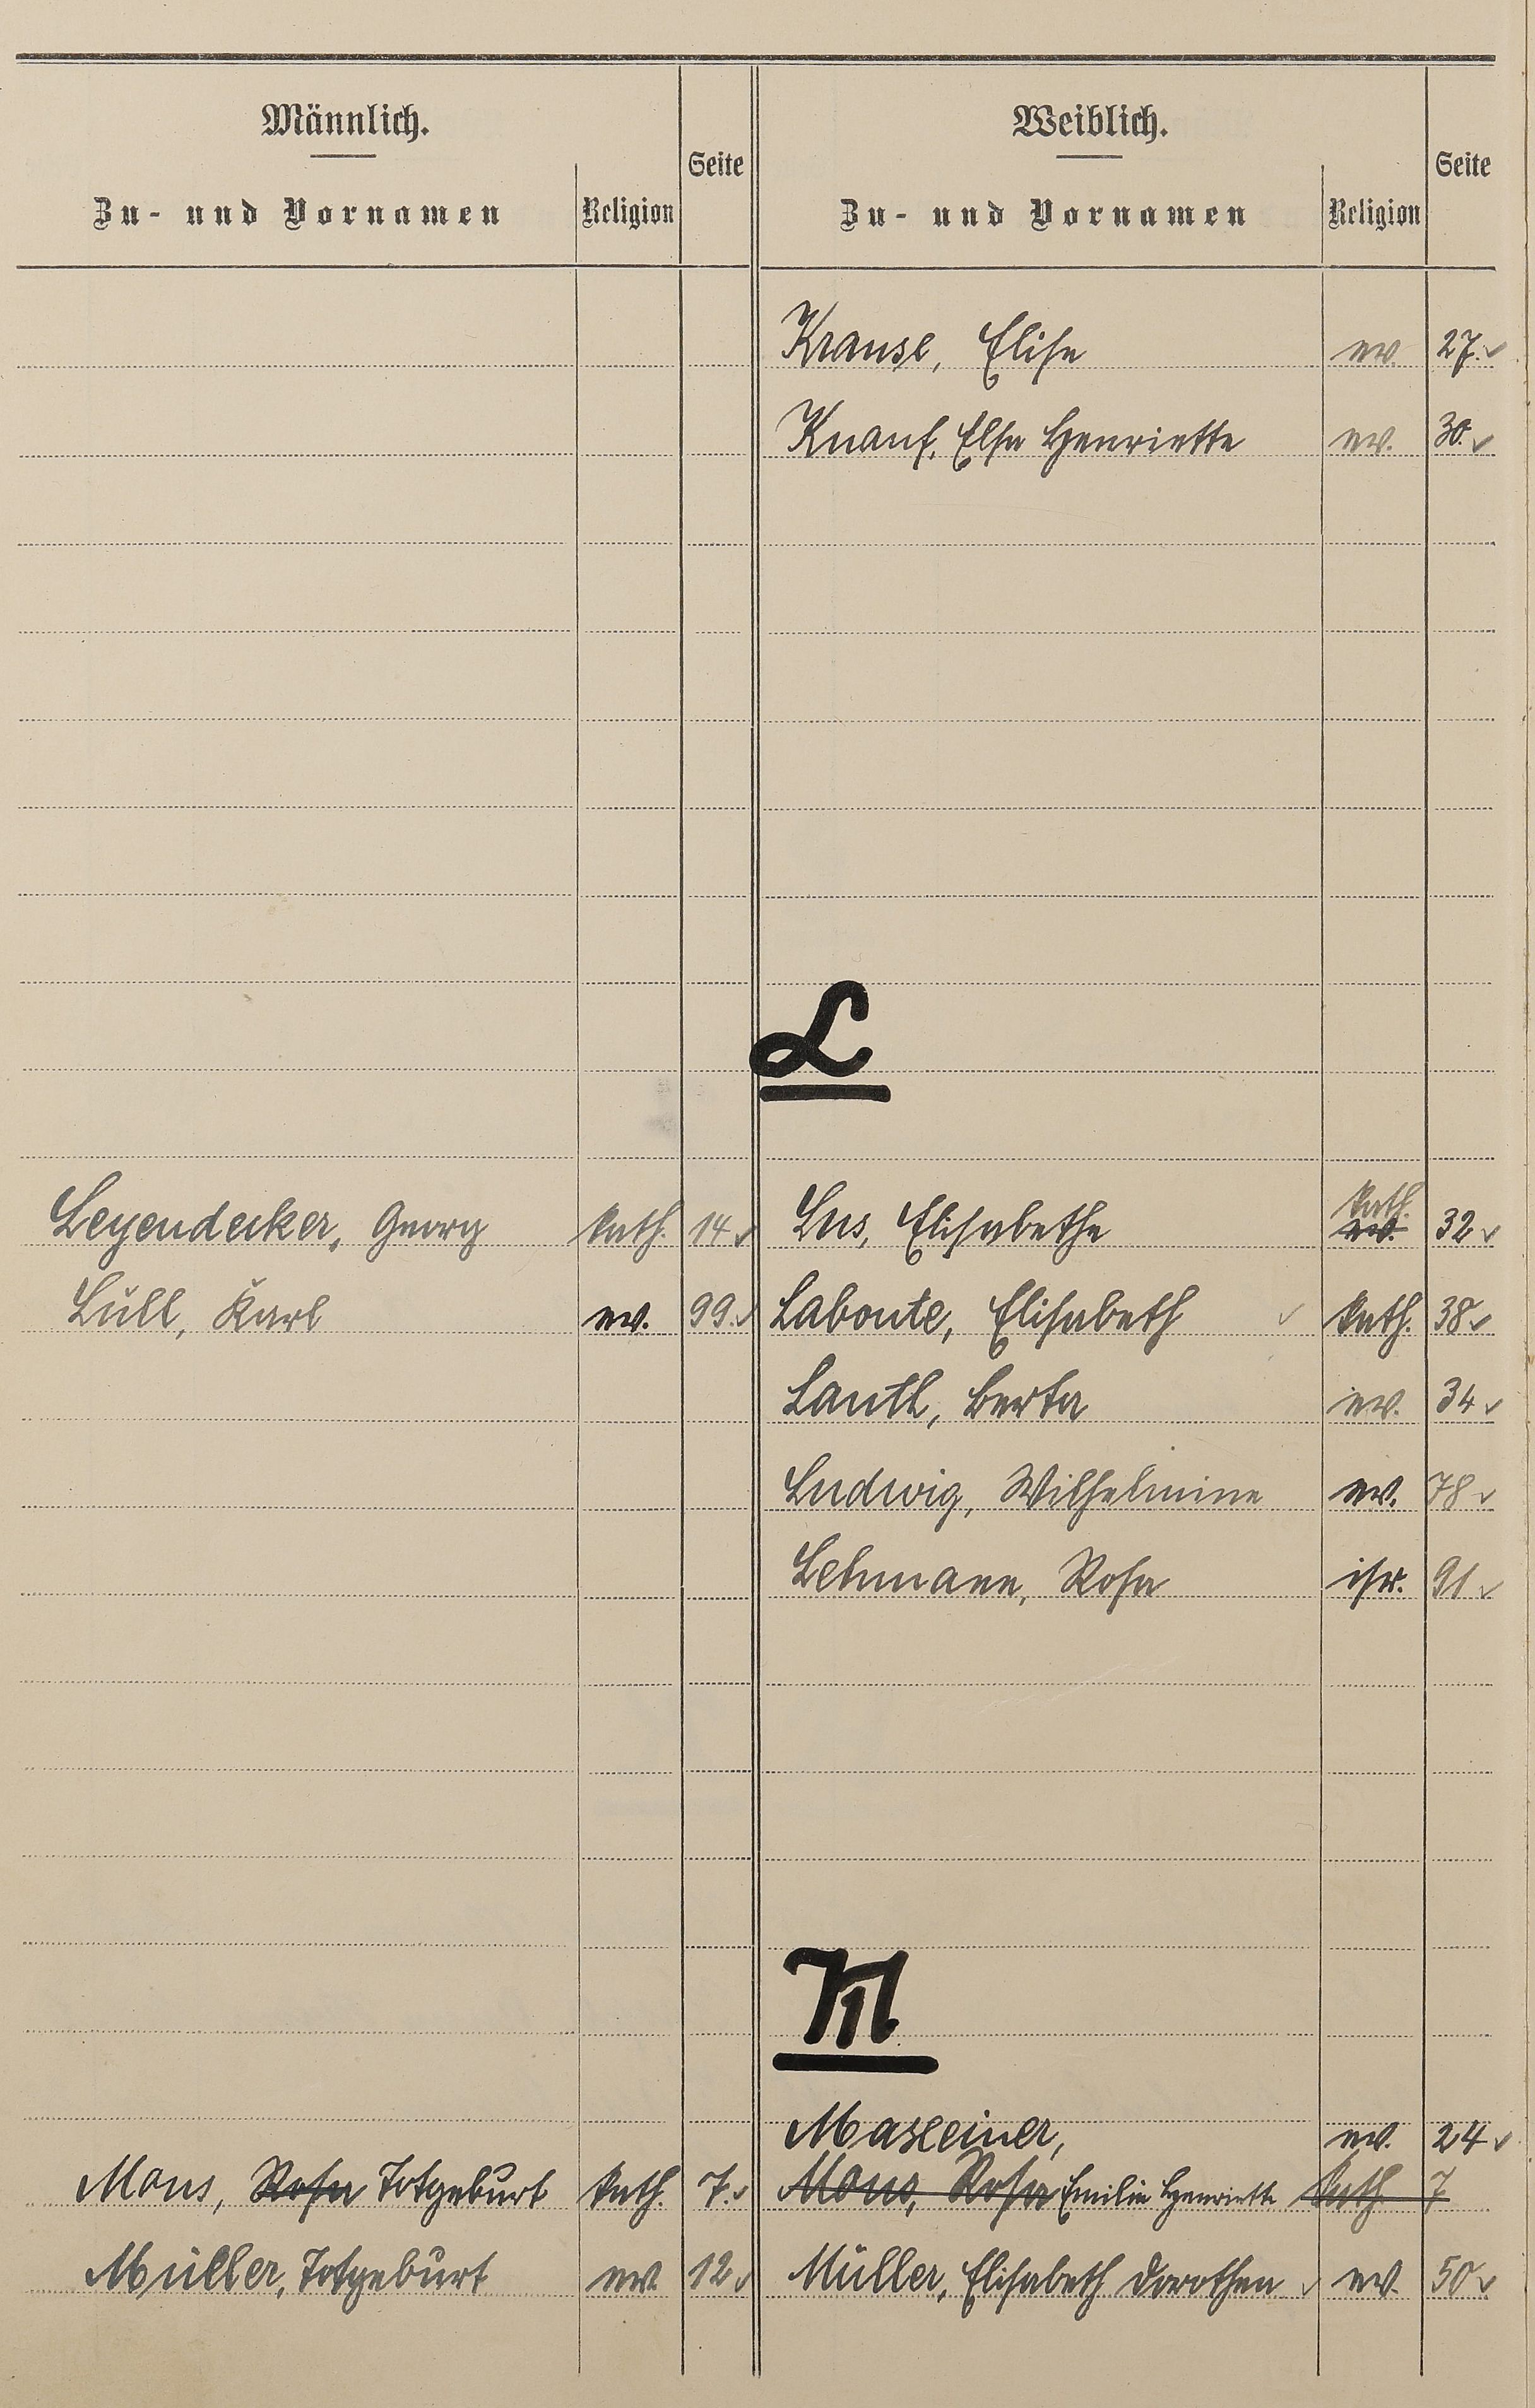 Männlich. Weiblich.
Seite Seite
Zu- und Vornamen Religion Zu- und Vornamen Religion
Krause, Elise ev. 27.
Knauf, Elsa Henriette ev. 30.
L
kath.
Leyendecker, Georg kath. 14 Lus, Elisabethe ev. 32
Lüll, Karl ev. 99. Laboute, Elisabeth kath. 38
Lauth, Berta ev. 34
Ludwig, Wilhelmine ev. 78
Lehmann, Rosa isr. 91
M
Maseeiner, ev. 24
Mons, Rosa Totgeburt kath. 7. Mons, Rosa Emilie Henriette kath 7
Müller, Totgeburt ev. 12 Müller, Elisabeth Dorothea ev. 50